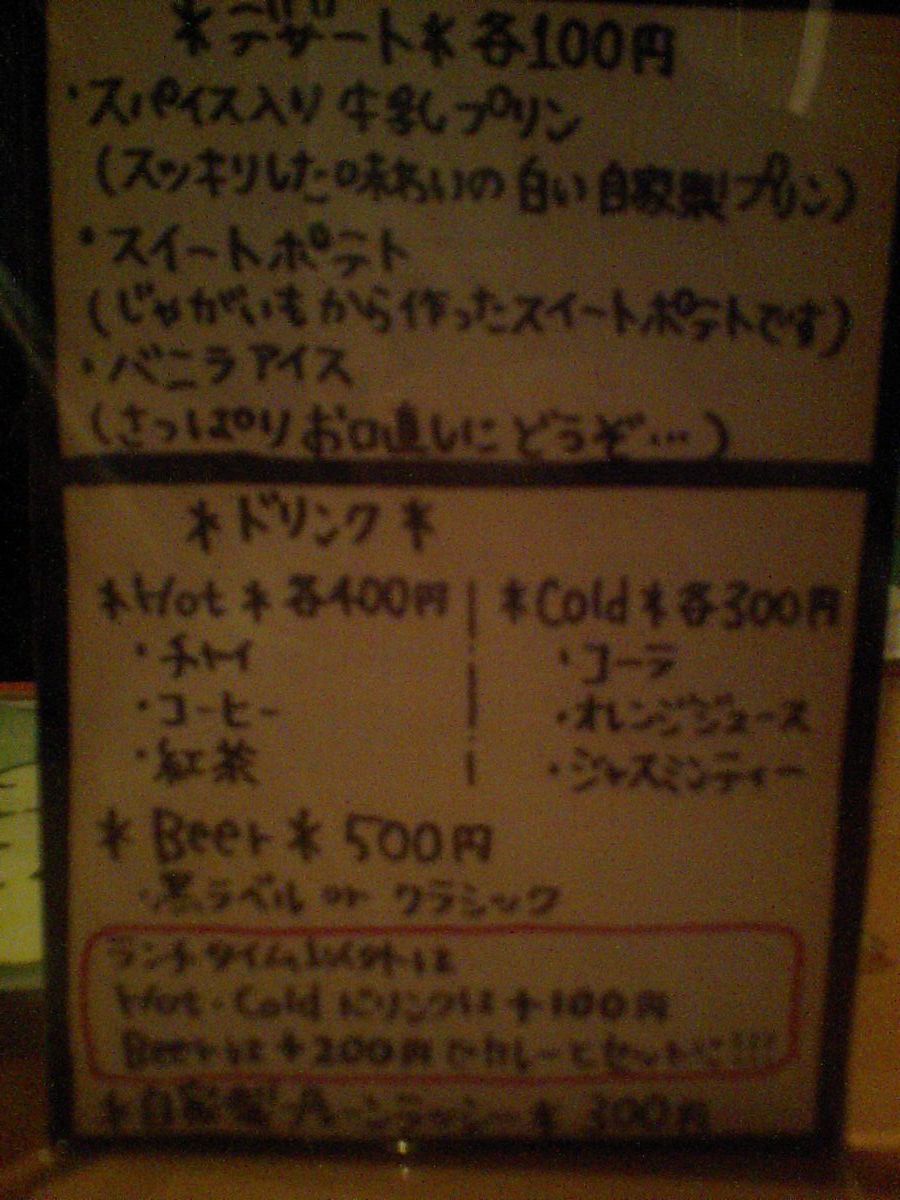 *デザート* 各100円
・スパイス入り牛乳プリン
(スッキリした味わいの白い自家製プリン)
・スイートポテト
(じゃがいもから作ったスイートポテトです)
・バニラアイス
(さっぱりお口直しにどうぞ…)
*ドリンク*
*Hot* 各400円
・チャイ
・コーヒー
・紅茶
*Cold* 各300円
・コーラ
・オレンジジュース
・ジャスミンティー
*Beer* 500円
・黒ラベル or クラシック
ランチタイム以外は
Hot・Coldドリンクは+100円
Beerは+200円でカレーとセットに!!!
*自家製 ラッシー* 300円